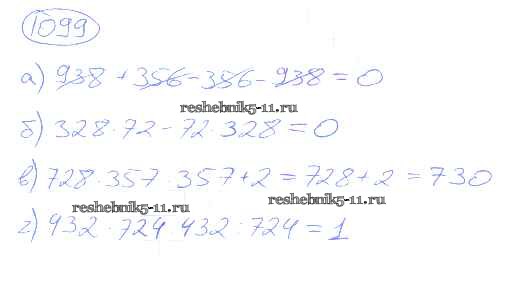 1099
а) 938 + 356 - 356 - 938 = 0
reshebnik5-11.ru
б) 328 · 72 - 72 · 328 = 0
в) 728 · 357 : 357 + 2 = 728 + 2 = 730
reshebnik5-11.ru
reshebnik5-11.ru
г) 432 · 724 : 432 : 724 = 1